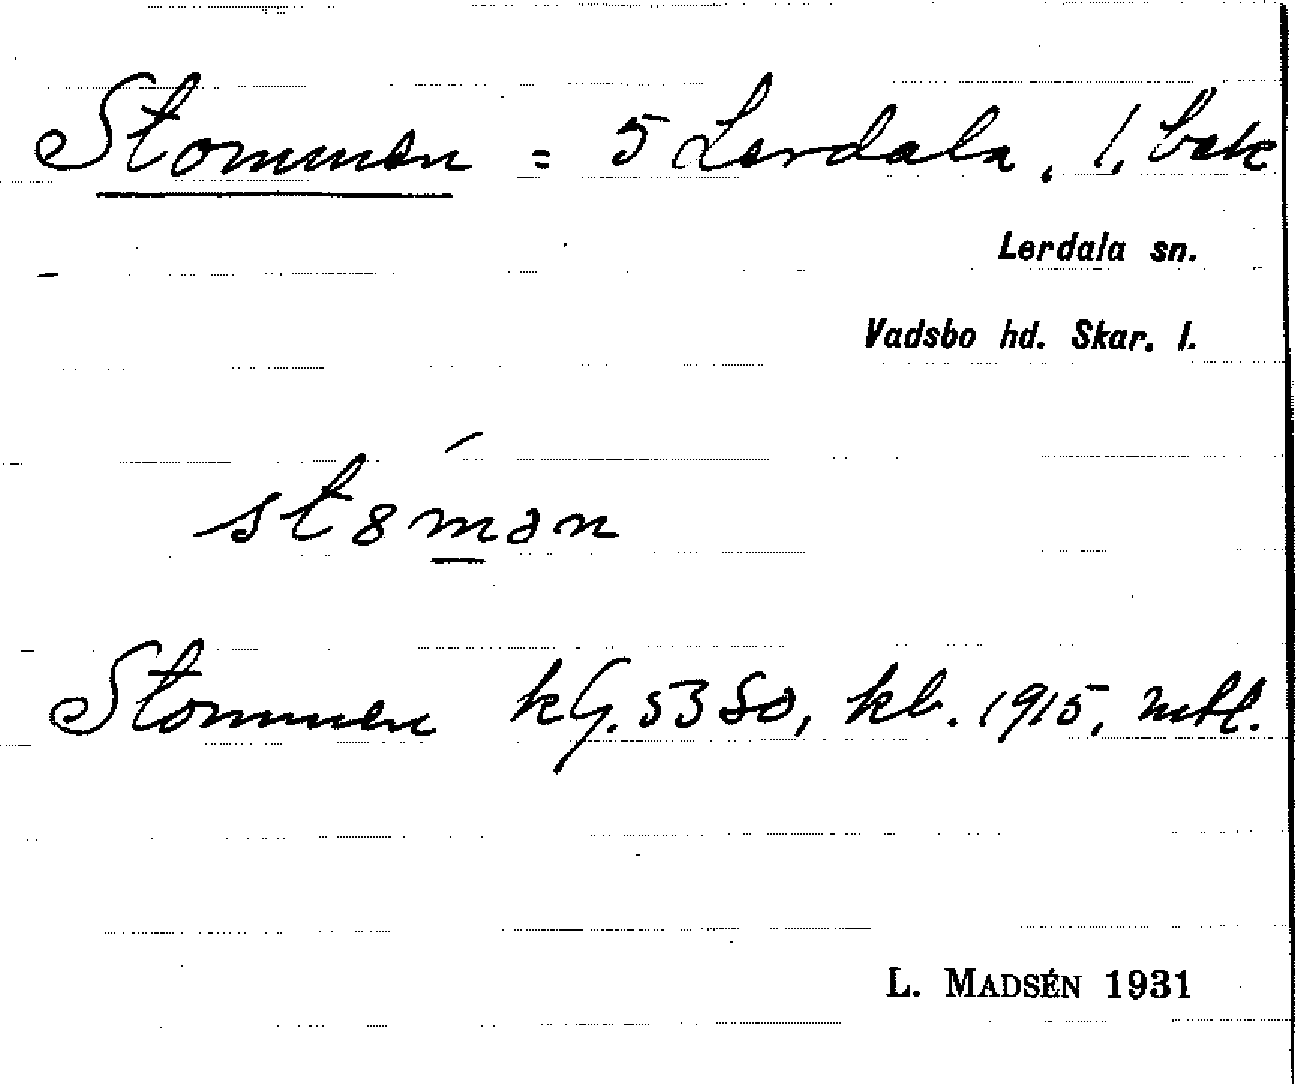 Stommen = 5 Lerdala, 1. bek
Lerdala sn.
Vadsbo hd. Skar. l.
st8mən
Stommen kG. 5380, kb. 1915, mtl.
L. MADSÉN 1931